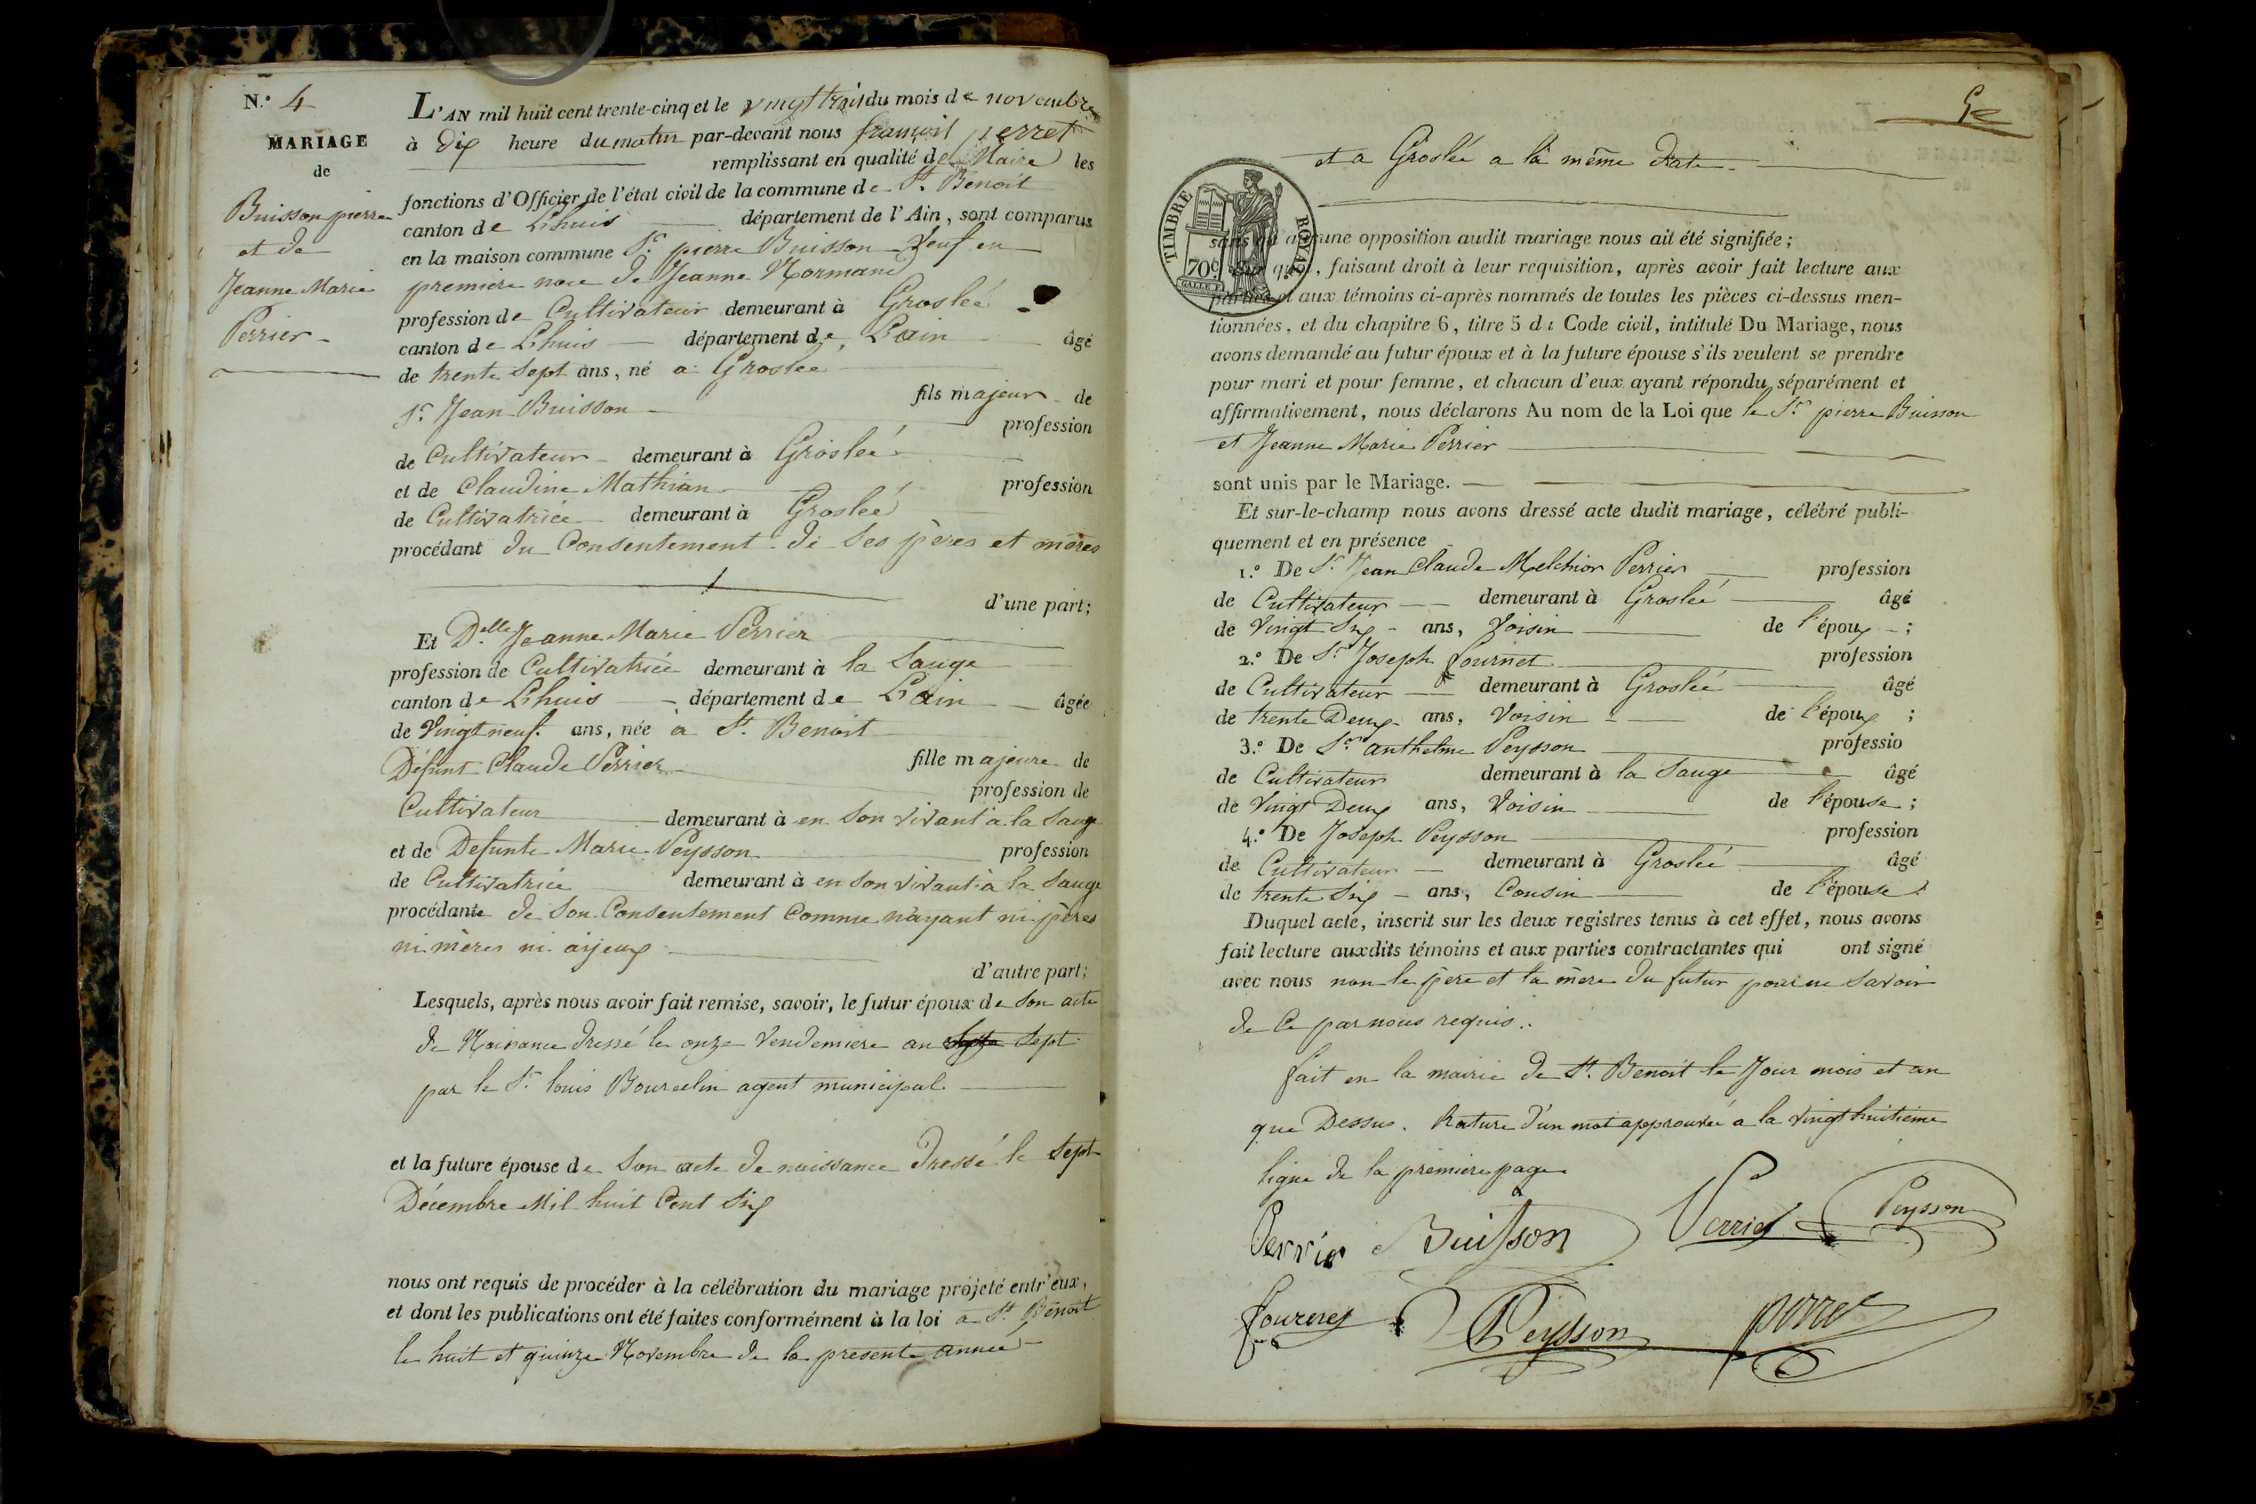 N.º 4
MARIAGE
de
Buisson pierre
et de
Jeanne Marie
Perrier
L'AN mil huit cent trente-cinq et le vingt trois du mois de novembre
à Dix heure du matin par-devant nous françois perret
remplissant en qualité de Maire les
fonctions d'Officier de l'état civil de la commune de St. Benoit
canton de Lhuis département de l'Ain, sont comparus
en la maison commune Sr. pierre Buisson Veuf en
premiere noce de Jeanne Normand
profession de Cultivateur demeurant à Grosleé
canton de Lhuis département de L'ain âgé
de trente Sept ans, né a Groslee
fils majeur de
Sr. Jean Buisson
profession
de Cultivateur demeurant à Grosleé
et de Claudine Mathian profession
de Cultivatrice demeurant à Grosleé
procédant du Consentement de Ses pères et mères
d'une part;
Et Delle Jeanne Marie Perrier
profession de Cultivatrice demeurant à la Sauge
canton de Lhuis département de L'ain âgée
de Vingt neuf ans, née à St. Benoit
fille majeure de
Défunt Claude Perrier
profession de
Cultivateur demeurant à en Son Vivant a la Sauge
et de Defunte Marie Peysson profession
de Cultivatrice demeurant à en Son vivant à la Sauge
procédante de Son Consentement Comme n'ayant ni pères
ni mères ni aijeux
d'autre part;
Lesquels, après nous avoir fait remise, savoir, le futur époux de Son acte
de Naissance dressé le onze Vendemiere an Sept
par le Sr. louis Bourcelin agent municipal
et la future épouse de Son acte de naissance Dressé le Sept
Décembre Mil huit Cent Six
nous ont requis de procéder à la célébration du mariage projeté entr'eux,
et dont les publications ont été faites conformément à la loi a St. Benoit
le huit et quinze Novembre de la presente année
et a Grosleé a la même date
TIMBRE ROYAL
70c
sans qu'aucune opposition audit mariage nous ait été signifiée;
Sur quoi, faisant droit à leur requisition, après avoir fait lecture aux
parties et aux témoins ci-après nommés de toutes les pièces ci-dessus men-
tionnées, et du chapitre 6, titre 5 du Code civil, intitulé Du Mariage, nous
avons demandé au futur époux et à la future épouse s'ils veulent se prendre
pour mari et pour femme, et chacun d'eux ayant répondu séparément et
affirmativement, nous déclarons Au nom de la Loi que le Sr. pierre Buisson
et Jeanne Marie Perrier
sont unis par le Mariage.
Et sur-le-champ nous avons dressé acte dudit mariage, célébré publi-
quement et en présence
1.º De Sr. Jean Claude Melchior Perrier profession
de Cultivateur demeurant à Grosleé âgé
de Vingt Six ans, Voisin de l'époux;
2.º De Sr. Joseph fournet profession
de Cultivateur demeurant à Grosleé âgé
de trente Deux ans, Voisin de l'époux;
3.º De Sr. anthelme Peysson professio
de Cultivateur demeurant à la Sauge âgé
de Vingt Deux ans, Voisin de l'épouse;
4.º De Joseph Peysson profession
de Cultivateur demeurant à Grosleé âgé
de trente Six ans, Cousin de l'épouse.
Duquel acte, inscrit sur les deux registres tenus à cet effet, nous avons
fait lecture auxdits témoins et aux parties contractantes qui ont signé
avec nous non le père et la mère du futur pour ne Savoir
de Ce par nous requis.
fait en la mairie de St. Benoit le Jour mois et an
que Dessus. Rature d'un mot approuvée a la Vingt huitième
ligne de la premiere page
Perrier Buisson Perrier Peysson
fournet Peysson perret